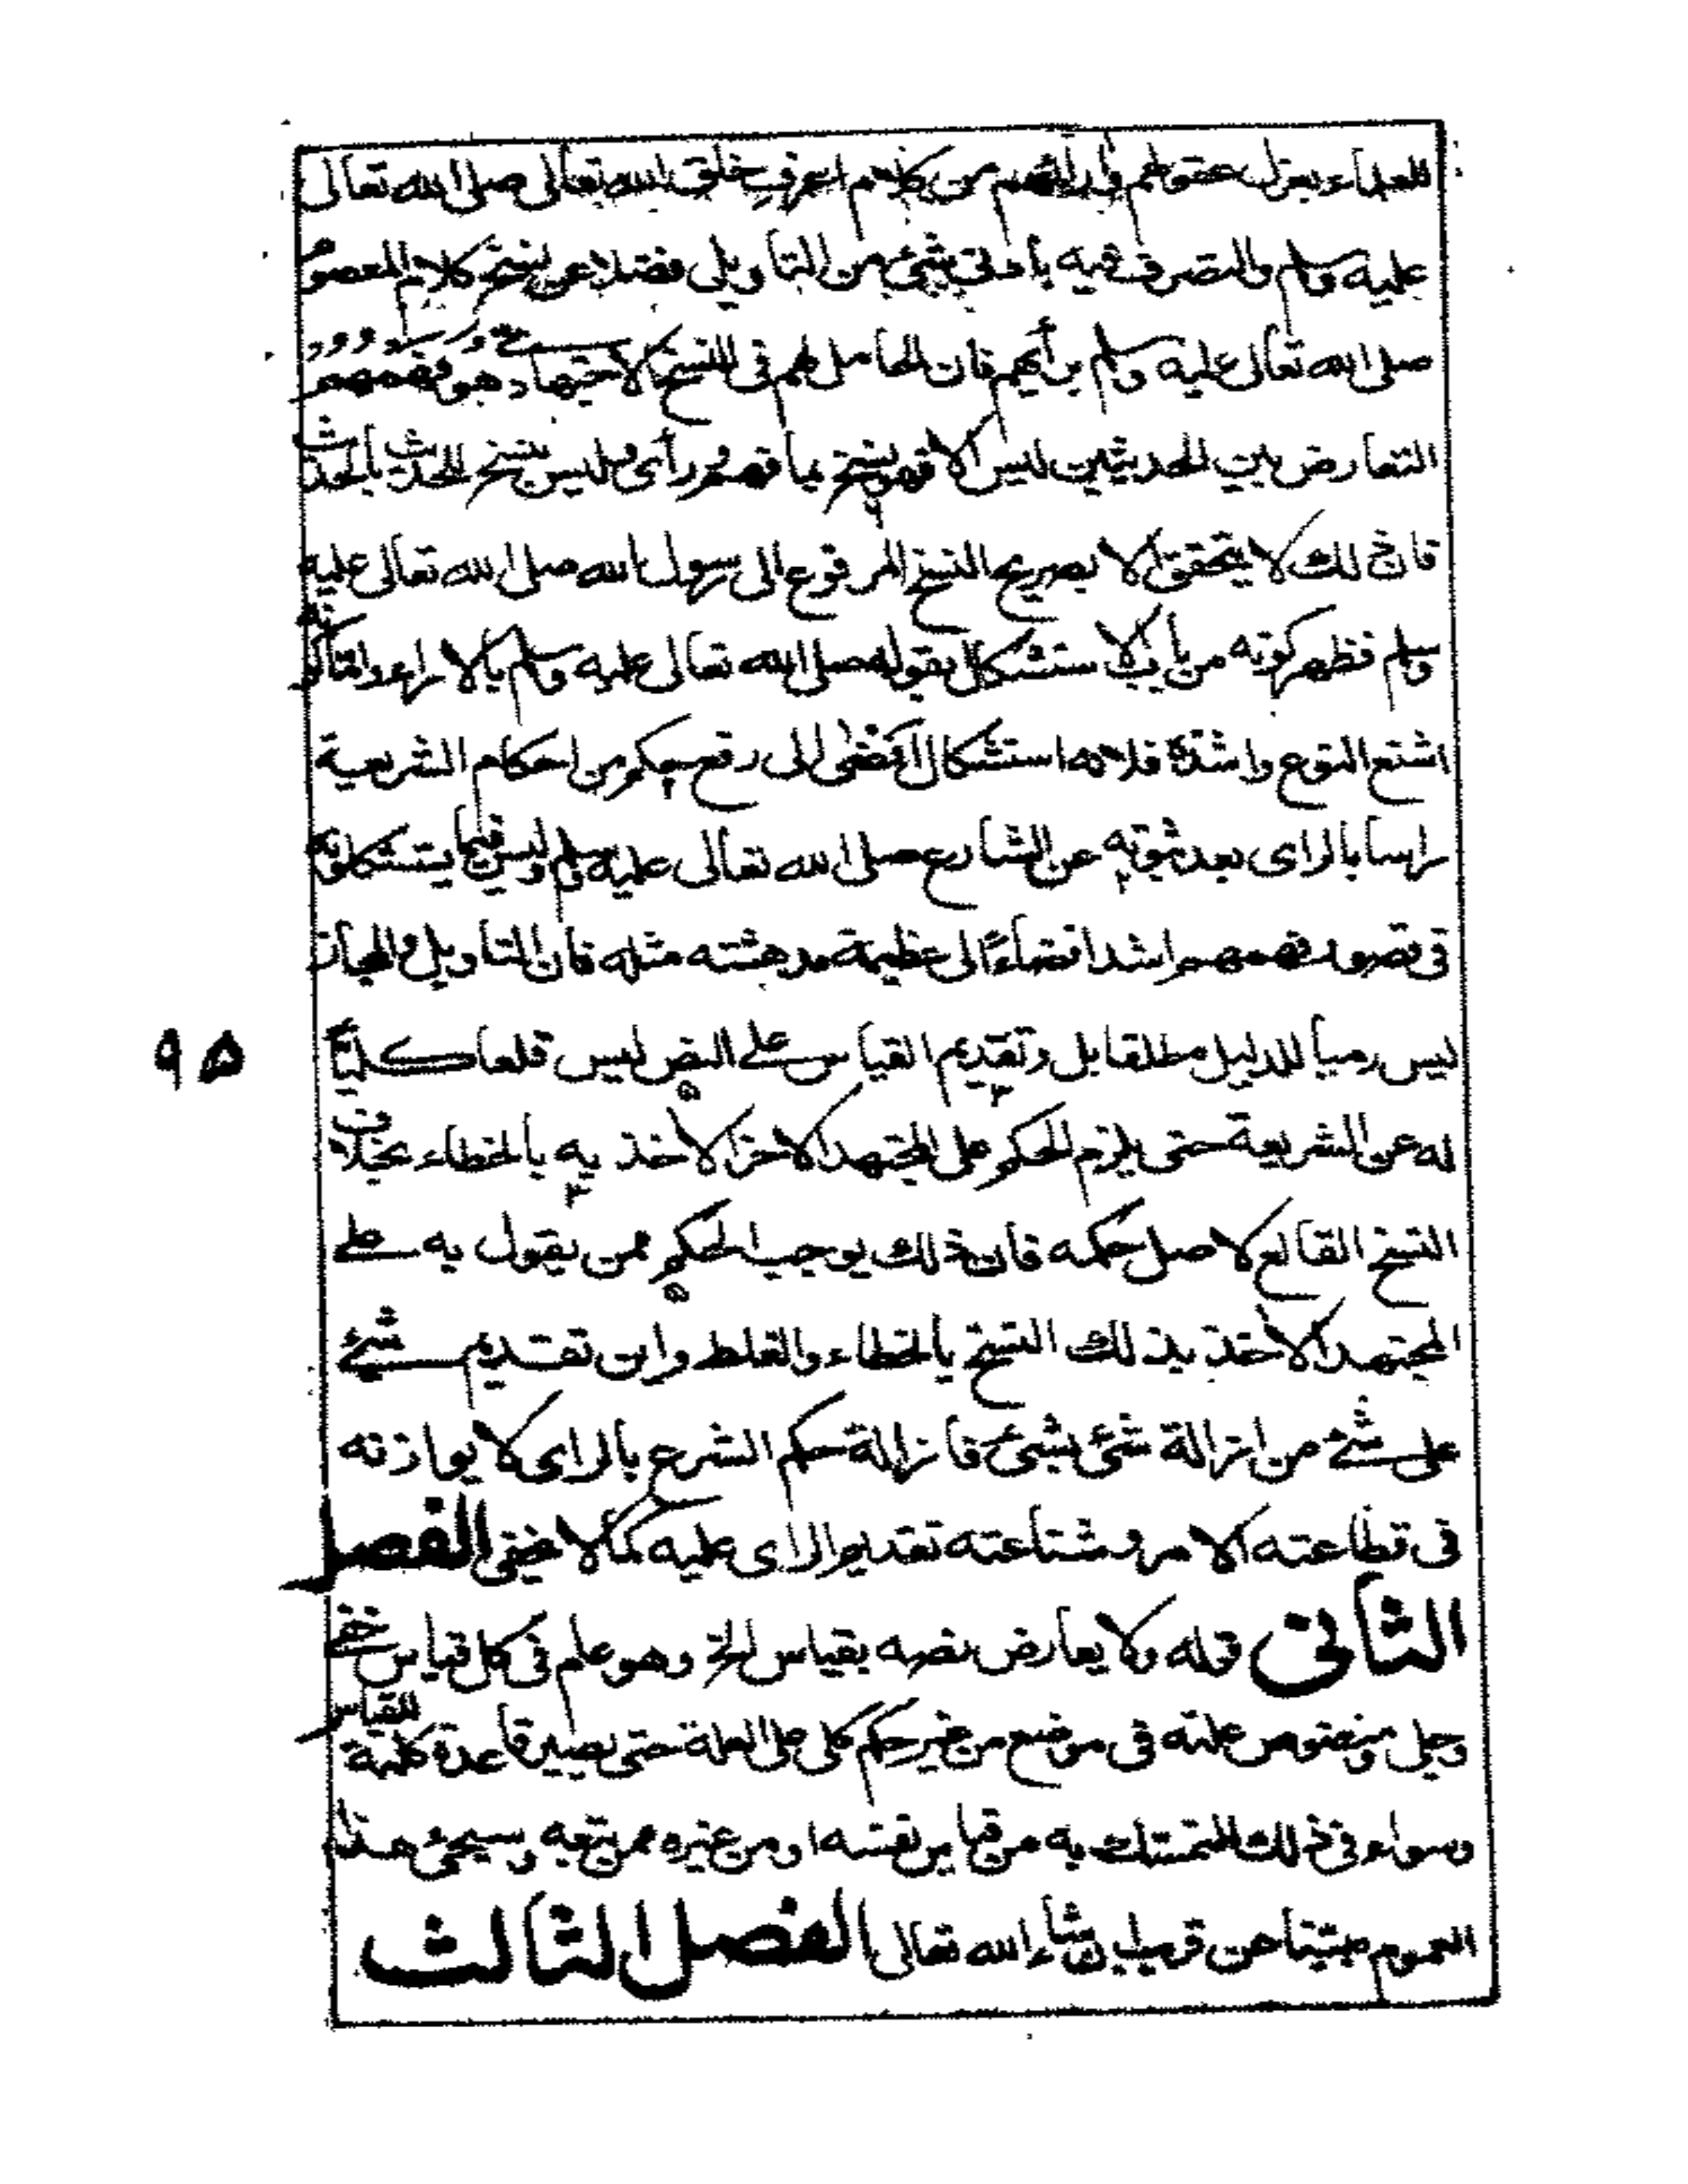 للعلماء بعزل عقولهم وارائهم من كلام اعرف خلق الله تعالى صلى الله تعالى
عليه وسلم والتصرف فيه بأدنى شئ من التاويل فضلا عن نسخ كلام المعصوم
صلى الله تعالى عليه وسلم برأيهم فان الحامل لهم فى النسخ الاجتهادى هو فهمهم
التعارض بين الحديثين ليس الا فهو نسخ بما فهم ورأى وليس بنسخ الحديث بالحديث
فان ذلك لا يتحقق الا بصريح النسخ المرفوع الى رسول الله صلى الله تعالى عليه
وسلم فظهر كونه من باب الاستشكال بقوله صلى الله تعالى عليه وسلم بالاراء
اشنع النوع واشده فلا استشكال افضى الى رفع حكم من احكام الشريعة
راسا بالراى بعد ثبوته عن الشارع صلى الله تعالى عليه وسلم وليس فيما يستشكلونه
فى تصور فهمهم اشد افضاءً الى عظيمة مدهشته مثله فان التاويل والمجاز
ليس رميا للدليل مطلقا بل وتقديم القياس على النص ليس قلعا كليًّا
له عن الشريعة حتى يلزم الحكم على المجتهد الاخر الاخذ به بالخطاء بخلاف
النسخ القالع لاصل حكمه فان ذلك يوجب الحكم ممن يقول به على
المجتهد الاخذ بذلك النسخ بالخطاء والغلط واين تقديم شئ
على شئ من ازالة شئ بشئ فازالة حكم الشرع بالراى لا يوازنه
فى فظاعته الامر وشناعته تقديم الراى عليه كما لا يخفى الفصل
الثانى قوله ولا يعارض نصه بقياس الخ وهو علم فى كل قياس خفى
وجلى ومنصوص علته فى موضع من غير حكم كلى على العلة حتى يصير قاعدة كلية للقياس
وسواء فى ذلك المتمسك به من قياس نفسه او من غيره ممن يتبعه وسيجئ هذا
العموم مبينا عن قريب ان شاء الله تعالى الفصل الثالث
٩٥